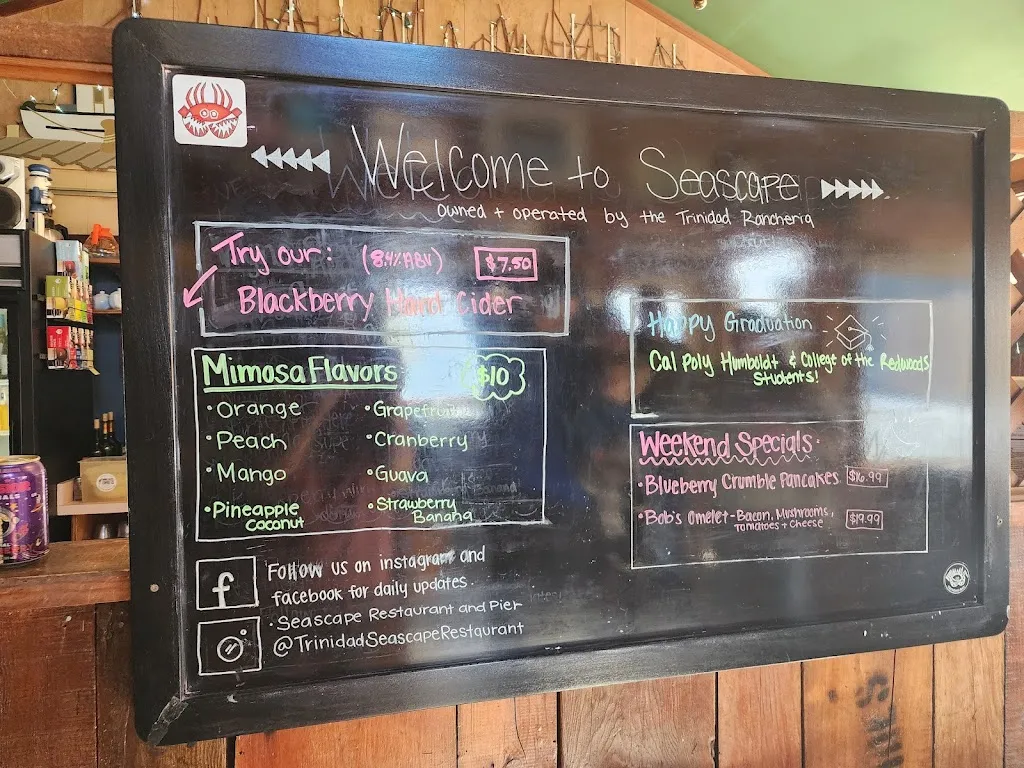 Welcome to Seascape
owned + operated by the Trinidad Rancheria
Try our: (8.4% ABV) $7.50
Blackberry Hard Cider
Mimosa Flavors $10
• Orange
• Peach
• Mango
• Pineapple
Coconut
• Grapefruit
• Cranberry
• Guava
• Strawberry
Banana
f Follow us on instagram and
facebook for daily updates.
• Seascape Restaurant and Pier
@TrinidadSeascapeRestaurant
Happy Graduation
Cal Poly Humboldt & College of the Redwoods
Students!
Weekend Specials
• Blueberry Crumble Pancakes $16.99
• Bob's Omelet - Bacon, Mushrooms,
Tomatoes + Cheese $19.99